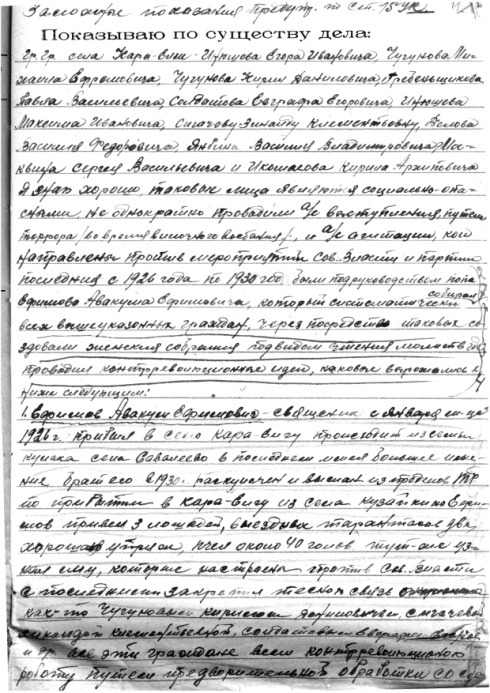 За ложные показания Предупр. по ст. 95 УК
Показываю по существу дела:
Гр. Гр. села Кара-Елги - Ивушева Егора Ивановича, Чугунова Ми-
хаила Ефромовича, Чугунова Кирилла Даниловича, Гребенщикова
Павла Васильевича, Солдатова Евграфа Егоровича,
Максима Ивановича, Сигачеву Зинаиду Клементьевну, Белова
Василия Федоровича, Янбина Василия Владимировича, Мо-
квина Сергея Васильевича и Кирилла Архиповича
я знаю хорошо, таковые лица являются социально-опа-
сными, не однократно проводили а/с выступления, путем
террора /во время вилочного востания/, и а/с агитации, кои
направлены против мероприятий Сов. Власти и партии
последния с 1926 года по 1930 год были под руководством попа
Ефимова Авакума Ефимовича, который систематически собирал
всех вышеуказанных граждан, через посредство таковых со-
здавали женския собрания под видом чтения молитв где
проводил контрреволюционные идеи, каковые выражались в
ниже следующим:
1. Ефимов Авакум Ефимович - священник с января м-ца
1926 г. прибыл в село Кара-Елгу происходит из семьи
кулака села Савалеево в последнем имел большое име-
ние брат его в 1930 г. раскулачен и выслан из пределов ТР
по прибытии в Кара-Елгу из села Кузайкино Ефи-
мов привез 3 лошадей, выездных тарантасов два,
хороший упряж, пчел около 40 голов тут-же уз-
нал ему, которые настроены против Сов. Власти
с последними закрепил тесную связь
как-то Чугуновым Кириллом Даниловичем Сигачевой
Зинаидой Клементьевной, Солдатовым Евграфом
и др. все эти граждане вели контрреволюционную
работу путем предворительной обработки со сто